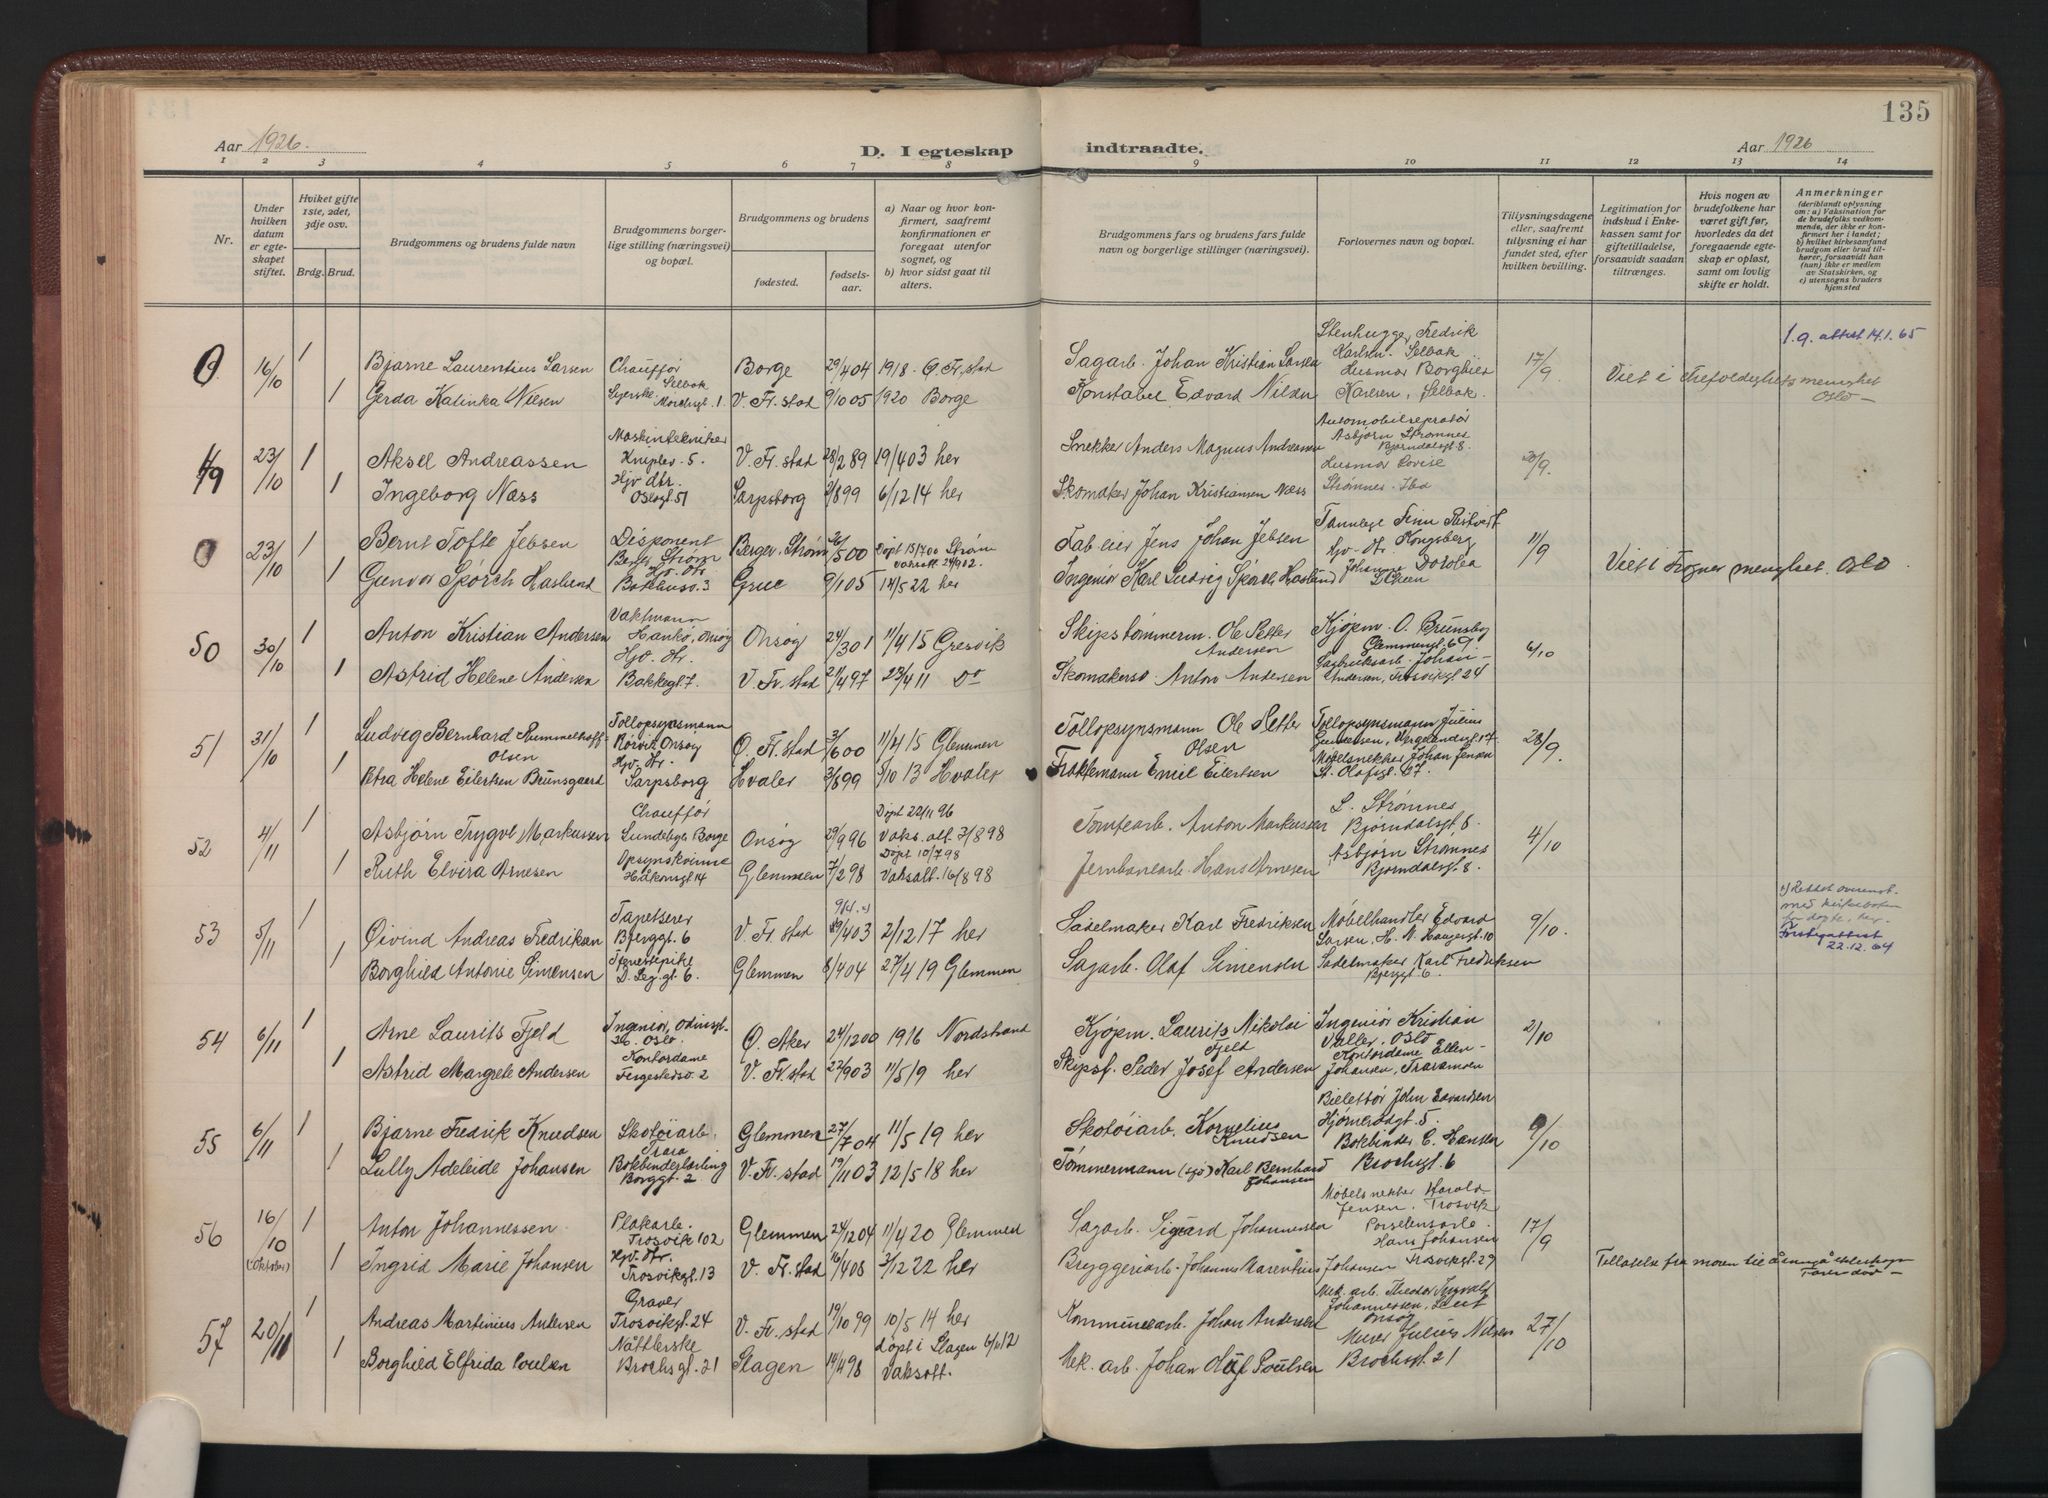 135
Aar 1926.
D. I egteskap
indtraadte.
Aar 1926
1 2 3 4 5 6 7 8 9 10 11 12 13 14
Nr.
Under hvilken datum er egteskapet stiftet.
Hviket gifte 1ste, 2det, 3dje osv.
Brdg. Brud.
Brudgommens og brudens fulde navn
Brudgommens borgerlige stilling (næringsvei) og bopæl.
Brudgommens og brudens
fødested.
fødselsaar.
a) Naar og hvor konfirmert, saafremt konfirmationen er foregaat utenfor sognet, og
b) hvor sidst gaat til alters.
Brudgommens fars og brudens fars fulde navn og borgerlige stillinger (næringsvei).
Forlovernes navn og bopæl.
Tillysningsdagene eller, saafremt tillysning ei har fundet sted, efter hvilken bevilling.
Legitimation for indskud i Enkekassen samt for giftetilladelse, forsaavidt saadan tiltrænges.
Hvis nogen av brudefolkene har været gift før, hvorledes da det foregaaende egteskap er opløst, samt om lovlig skifte er holdt.
Anmerkninger
(deriblandt oplysning om: a) Vaksination for de brudefolks vedkommende, der ikke er konfirmert her i landet; b) hvilket kirkesamfund brudgom eller brud tilhører, forsaavidt han (hun) ikke er medlem av Statskirken, og c) utensogns bruders hjemsted
0 16/10 1 Bjarne Laurentius Larsen Chauffør Selbak Borge 29/4 04 1918 - Ø. Fr.stad Sagarb. Johan Kristian Larsen Stenhugger Fredrik Karlsen. Selbak 17/9 1.9. attest 14.1.65
1 Gerda Katinka Nilsen V. Fr. stad 9/10 05 1920 Borge Konstabel Edvard Nilsen Husmor Borghild Karlsen, Selbak. Viet i Trefoldighets menighet Oslo
49 23/10 1 Aksel Andreassen Maskintekniker Knuplev. 5. V. Fr. stad 28/2 89 19/4 03 her Snekker Anders Magnus Andreassen Automobilreparatør Asbjørn Strømnes Bjørndalsgt 8. 20/9.
1 Ingeborg Næss Hjv dtr. Oslogt 51 Sarpsborg 9/8 99 6/12 14 her Skomaker Johan Kristiansen Næss Husmor Lovise Strømnes. Ibd
0 23/10 1 Bernt Tofte Jebsen Disponent Berger, Strøm Berger, Strøm 26/5 00 Døpt 15/7 00 Strøm vaksatt 24/9 12. Fab eier Jens Johan Jebsen Tannlege Finn Kongsberg 11/9
1 Gunvor Spørck Haslund Hjv. dtr. 3 Grue 9/1 05 14/5 22 her Ingeniør Karl Ludvig Spørck Haslund Hjv. dtr. Johanne Dorotea Viet i Frogner menighet. Oslo
50 30/10 1 Anton Kristian Andersen Vaktmann Hankø, Onsøy Onsøy 24/3 01 11/4 15 Gresvik Skipstømmerm. Ole Petter Andersen Kjøpm. O. Brunsby Glemmengt. 69. 6/10
1 Astrid Helene Andersen Hjv. dtr. Bakkegt 7. V. Fr. stad 21/4 97 23/4 11 Do Skomakersv. Anton Andersen Sagbruksarb. Johan Andersen, Trosvikgt 24
51 31/10 1 Ludvig Bernhard Rummelhoff Olsen Tollopsynsmann Rørvik Onsøy Ø. Fr. stad 3/6 00 11/4 15 Glemmen Tollopsynsmann Ole Petter Olsen Tollopsynsmann Julius Gundersen, Vergelandsgt 14 28/9.
1 Petra Helene Eilertsen Brunsgaard Hjv. dtr. Sarpsborg Hvaler 3/8 99 5/10 13 Hvaler Fraktemann Emil Eilertsen Møbelsnekker Johan Jensen St. Olafsgt. 67.
52 4/11 1 Asbjørn Trygve Markussen Chauffør Lundeby, Borge Onsøy 29/9 96 Døpt 22/11 96 Vaks. att. 7/8 98 Tomtearb. Anton Markussen L. Strømnes Bjørndalsgt 8. 4/10
1 Ruth Elvira Arnesen Opsynskvinne Håkonsgt 14 Glemmen 7/2 98 Døpt 10/7 98 Vaksatt. 16/8 98 Jernbanearb. Hans Arnesen Asbjørn Strømnes Bjørndalsgt. 8.
53 5/11 1 Øivind Andreas Fredriksen Tapetserer Bjerggt. 6 V. Fr. stad 9/4. 29/4 03 2/12 17 her Sadelmaker Karl Fredriksen Møbelhandler Edvard Larsen, H. N. Haugesgt. 10 9/10. Rettet overenst. med kirkeboken for døpte, her. 22.12.64
1 Borghild Antonie Simensen gt. 6. Glemmen 8/4 04 27/4 19 Glemmen Sagarb. Olaf Simensen Sadelmaker Karl Fredriksen Bjerggt. 6.
54 6/11 1 Arne Laurits Fjeld Ingeniør, Odinsgt. Oslo Ø. Aker 24/12 00 1916 Nordstrand Kjøpm. Laurits Nikolai Fjeld Ingeniør Kristian Valler. Oslo 2/10
1 Astrid Margrete Andersen Kontordame Fergestedsv. 2 V. Fr. stad 23/9 03 11/5 19 her Skipsf. Peder Josef Andersen Kontordame Ellen Johansen, Traramoen
55 6/11 1 Bjarne Fredrik Knudsen Skotøiarb. Trara Glemmen 27/7 04 11/5 19 her Skotøiarb. Kornelius Knudsen John Edvardsen Hjørnerødgt. 5. 9/10
1 Lully Adeleide Johansen Bokbinderlærling Borggt. 2 V. Fr. stad 19/11 03 12/5 18 her Tømmermann (sjø) Karl Bernhard Johansen Bokbinder E. Hansen Brochsgt. 6
56 16/10 (Oktober) 1 Anton Johannessen Plakarb. Trosvik 102 Glemmen 24/12 04 11/4 20 Glemmen Sagarb. Sigurd Johannessen Møbelsnekker Harald Jensen. Trosvik 17/9
1 Ingrid Marie Johansen Hjv. dtr. Trosvikgt. 13 V. Fr. stad 16/4 08 3/12 22 her Bryggeriarb. Johannes Marentius Johansen Porselensarb. Hans Johansen Trosvikgt. 29 Tillatelse fra moren til å inngå ekteskap Faren død
57 20/11 1 Andreas Martinius Andersen Graver Trosvikgt. 24 V. Fr. stad 19/10 99 10/5 14 her Kommunearb. Johan Andersen Mek. arb. Theodor Ingvald Johannessen, Lunt Onsøy 27/10
1 Borghild Elfrida Poulsen Nåtlerske Brochsgt. 21 Slagen 14/4 98 døpt i Slagen 6/1 12 Vaksatt. Mek. arb. Johan Oluf Poulsen Murer Julius Nilsen Brochsgt 21